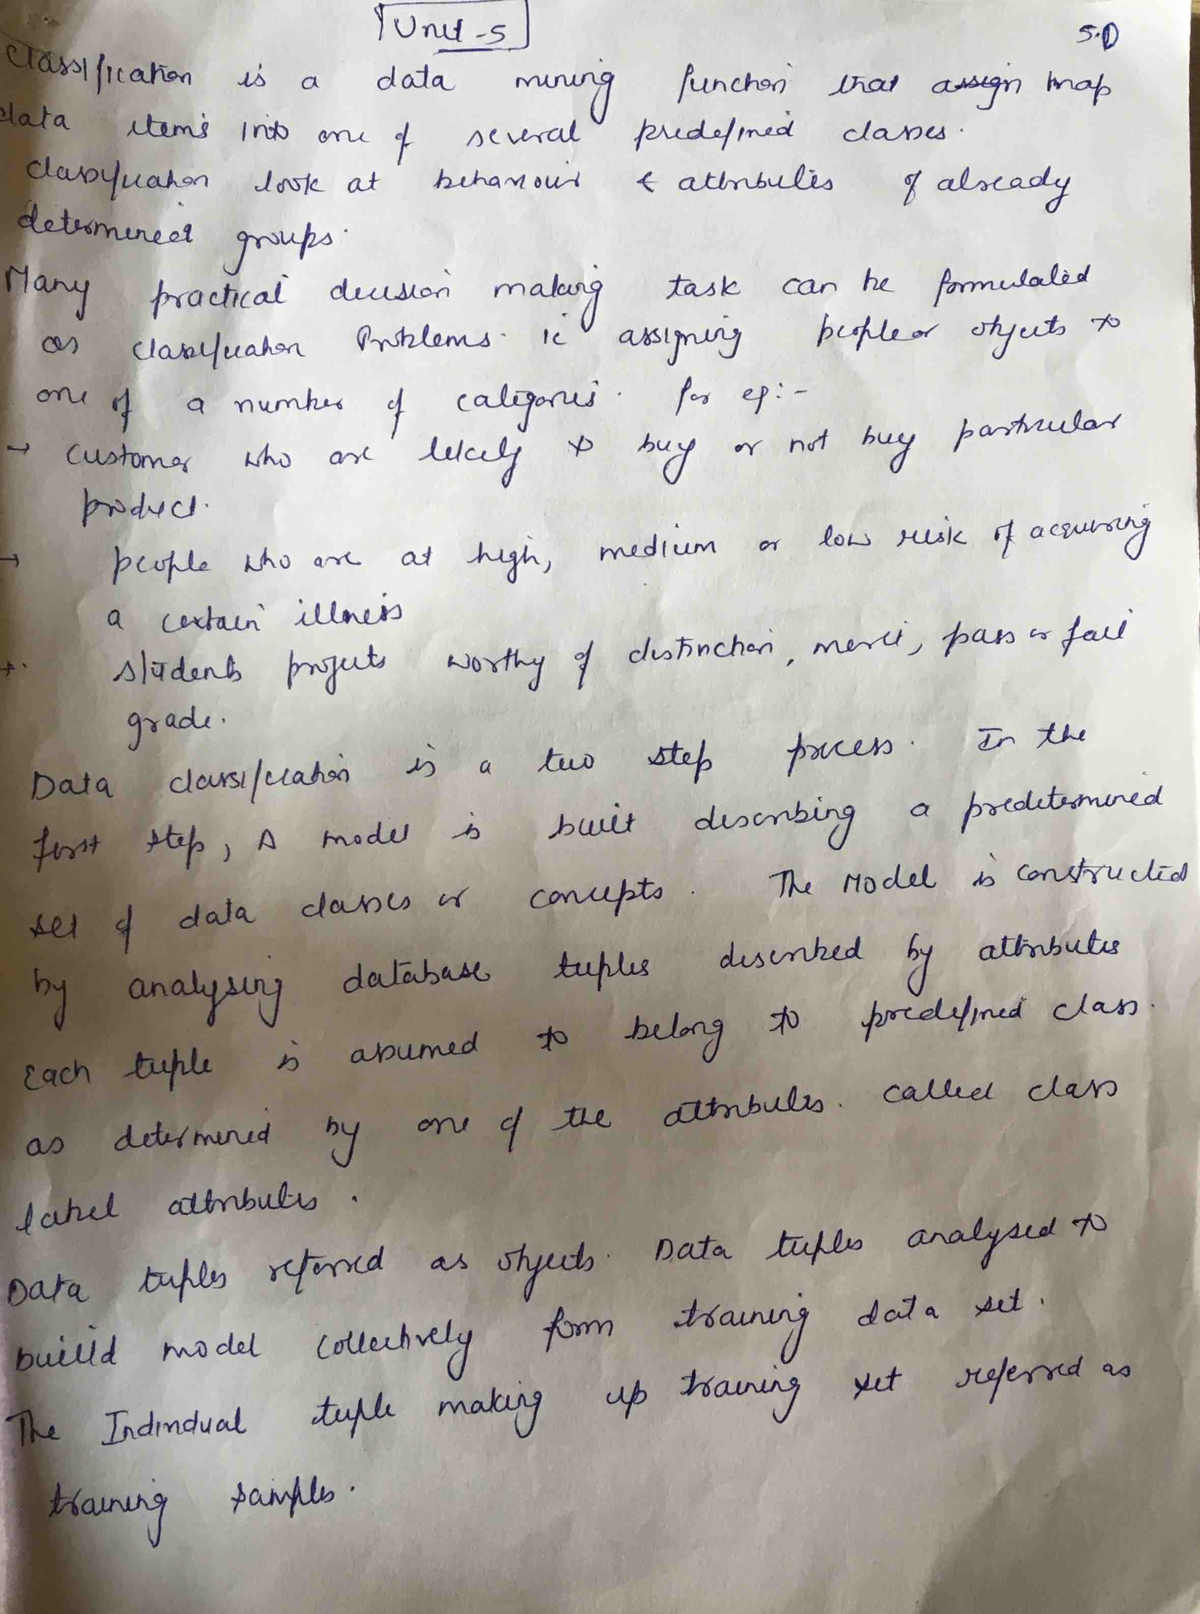 Unit-5
5.1
Classification is a data mining function that assign map
data items into one of several predefined classes.
classification look at behaviour & attributes of already
determined groups.
Many practical decision making task can be formulated
as classification Problems. ie assigning people or objects to
one of a number of categories. for eg:-
→ customer who are likely to buy or not buy particular
product.
→ people who are at high, medium or low risk of acquiring
a certain illness
→. students projects worthy of distinction, merit, pass or fail
grade.
Data classification is a two step process. In the
first step, A model is built describing a predetermined
set of data classes or concepts. The Model is constructed
by analysing database tuples described by attributes
Each tuple is assumed to belong to predefined class.
as determined by one of the attributes. called class
label attributes.
Data tuples referred as objects. Data tuples analysed to
build model collectively form training data set.
The Individual tuple making up training set referred as
training samples.